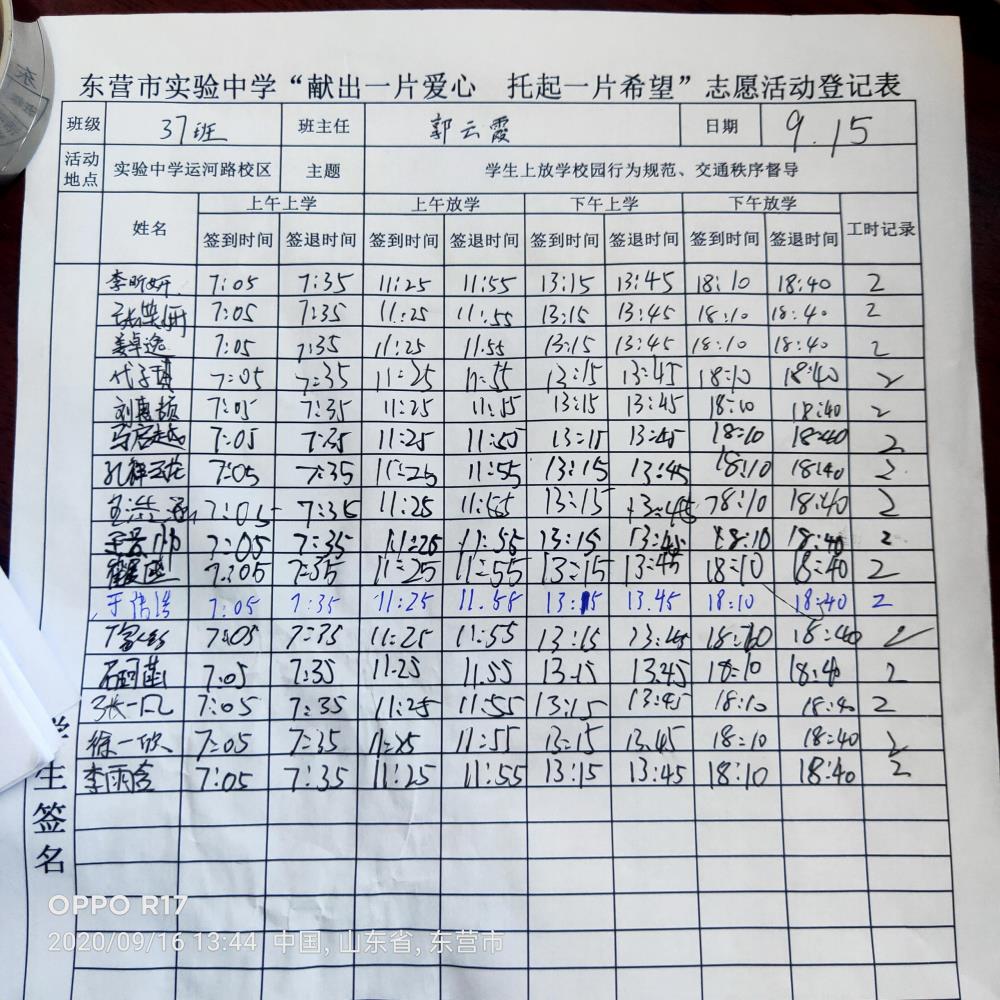 东营市实验中学“献出一片爱心 托起一片希望”志愿活动登记表
班级 37班 班主任 郭云霞 日期 9.15
活动地点 实验中学运河路校区 主题 学生上放学校园行为规范、交通秩序督导
姓名 上午上学 上午放学 下午上学 下午放学 工时记录
签到时间 签退时间 签到时间 签退时间 签到时间 签退时间 签到时间 签退时间
李昕妍 7:05 7:35 11:25 11:55 13:15 13:45 18:10 18:40 2
7:05 7:35 11:25 11:55 13:15 13:45 18:10 18:40 2
姜卓逸 7:05 7:35 11:25 11:55 13:15 13:45 18:10 18:40 2
代子 7:05 7:35 11:25 11:55 13:15 13:45 18:10 18:40 2
刘惠颉 7:05 7:35 11:25 11:55 13:15 13:45 18:10 18:40 2
7:05 7:35 11:25 11:55 13:15 13:45 18:10 18:40 2
7:05 7:35 11:25 11:55 13:15 13:45 18:10 18:40 2
7:05 7:35 11:25 11:55 13:15 13:45 18:10 18:40 2
7:05 7:35 11:25 11:55 13:15 13:45 18:10 18:40 2
7:05 7:35 11:25 11:55 13:15 13:45 18:10 18:40 2
于 7:05 7:35 11:25 11.58 13:15 13.45 18:10 18:40 2
7:05 7:35 11:25 11:55 13:15 13:45 18:10 18:40 2
石 7:05 7:35 11:25 11.55 13:15 13.45 18:10 18:40 2
张一凡 7:05 7:35 11:25 11:55 13:15 13:45 18:10 18:40 2
徐一欣 7:05 7:35 11:25 11:55 13:15 13.45 18:10 18:40 2
李雨 7:05 7:35 11:25 11:55 13:15 13:45 18:10 18:40 2
学生签名
OPPO R17
2020/09/16 13:44 中国,山东省,东营市